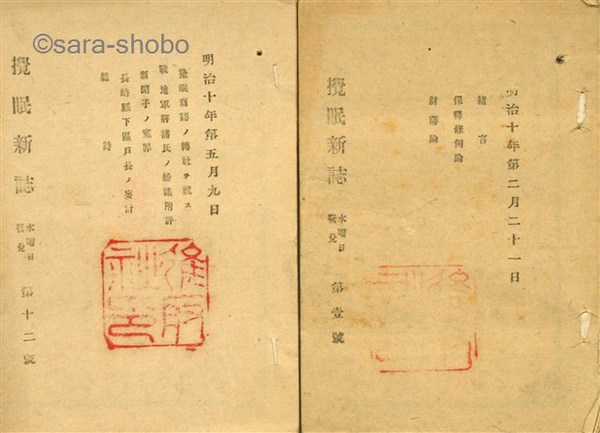 ©sara-shobo
明治十年第二月二十一日
緒言
保釋條例論
攪眠新誌
水曜日
發兌
第壹號
明治十年第五月九日
攪眠新誌ノ轉社ヲ祝ス
戰地軍將諸氏ノ論議附評
新聞子ノ
長崎縣下區戸長ノ
攪眠新誌
水曜日
發兌
第十二號